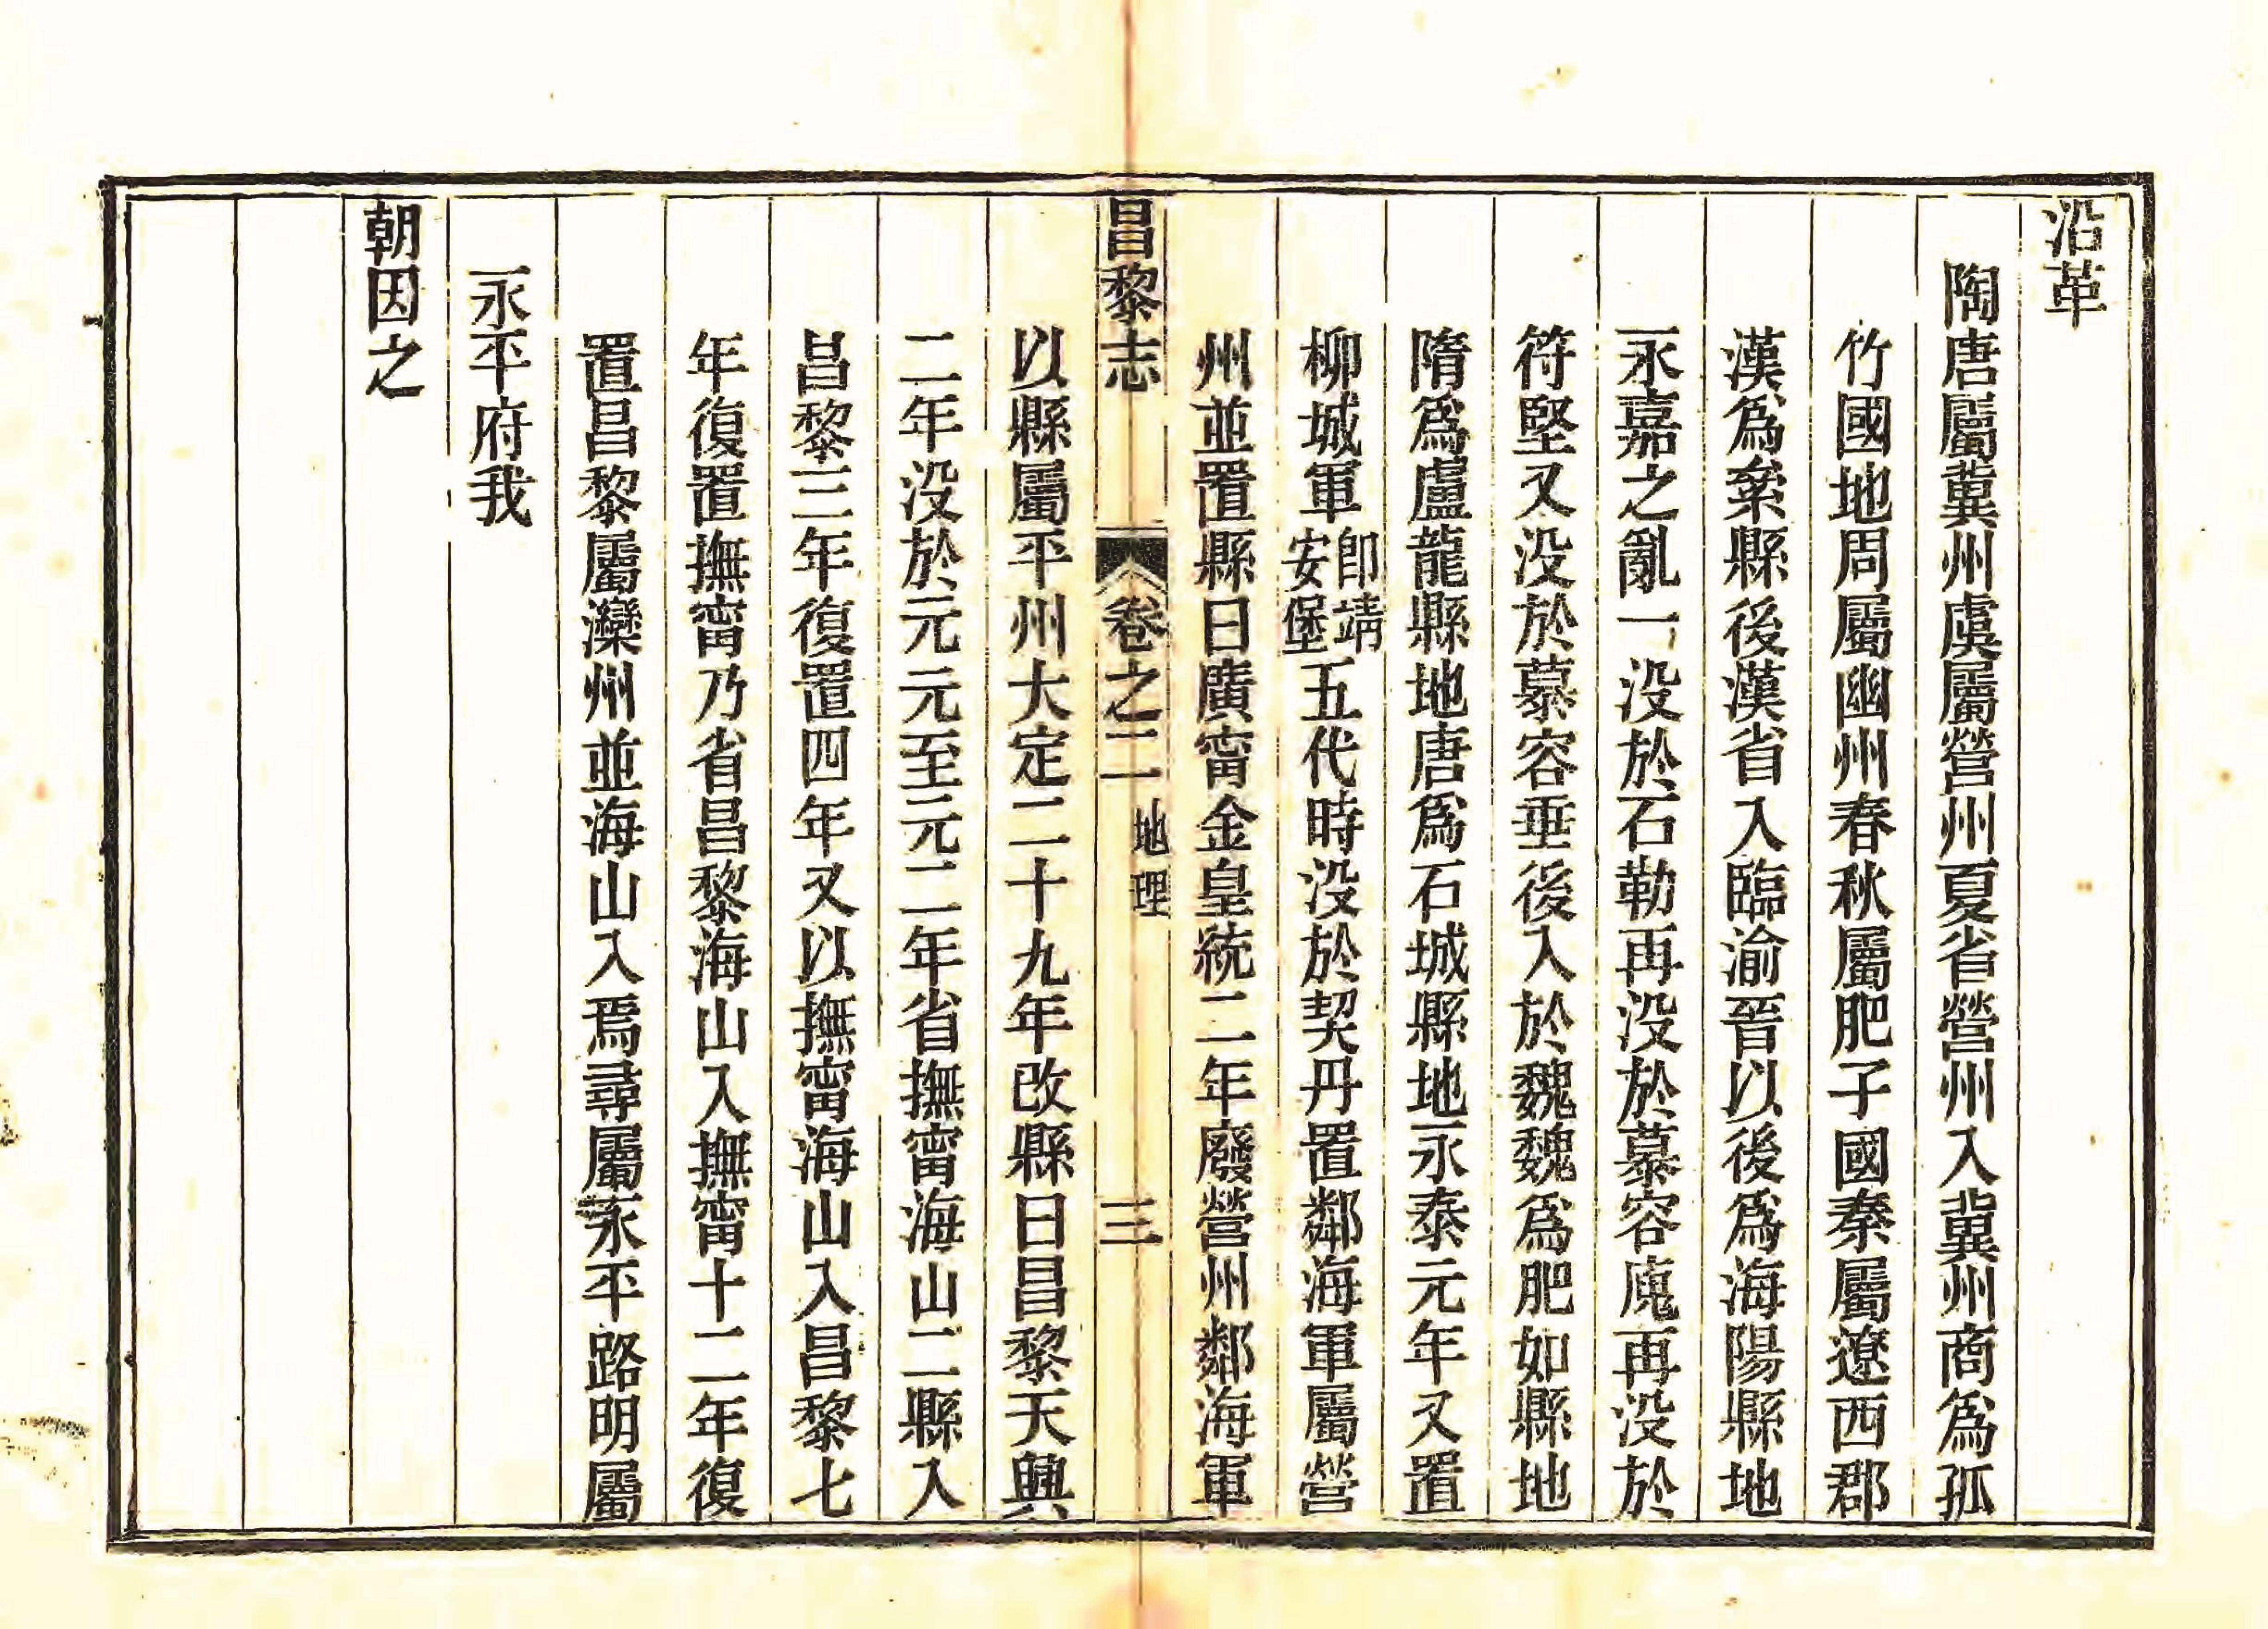 沿革
陶唐屬冀州虞屬營州夏省營州入冀州商爲孤
竹國地周屬幽州春秋屬肥子國秦屬遼西郡
漢爲絫縣後漢省入臨渝晉以後爲海陽縣地
永嘉之亂一没於石勒再没於慕容廆再没於
符堅又没於慕容垂後入於魏魏爲肥如縣地
隋爲盧龍縣地唐爲石城縣地永泰元年又置
柳城軍卽靖安堡五代時没於契丹置鄰海軍屬營
州並置縣曰廣甯金皇統二年廢營州鄰海軍
昌黎志 卷之二 地理 三
以縣屬平州大定二十九年改縣曰昌黎天興
二年没於元元至元二年省撫甯海山二縣入
昌黎三年復置四年又以撫甯海山入昌黎七
年復置撫甯乃省昌黎海山入撫甯十二年復
置昌黎屬灤州並海山入焉尋屬永平路明屬
永平府我
朝因之